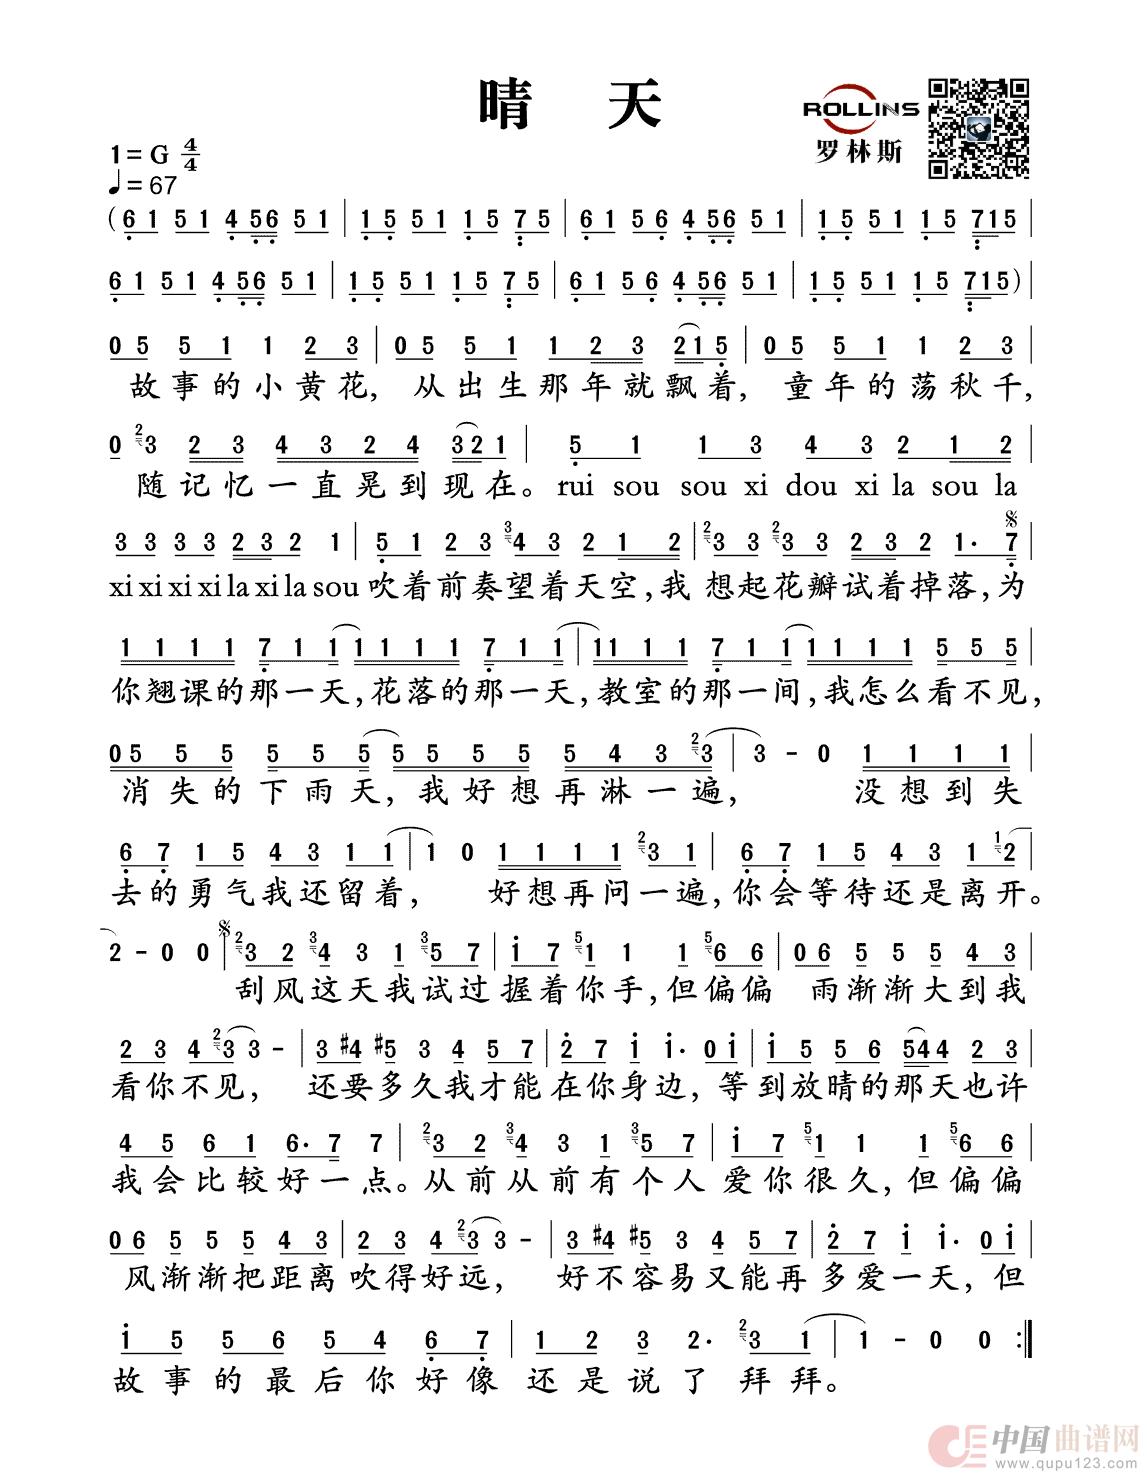 晴 天
ROLLINS
罗林斯
1=G 4/4
♩=67
(6 1 5 1 4 56 5 1 | 1 5 5 1 1 5 7 5 | 6 1 5 6 4 56 5 1 | 1 5 5 1 1 5 715 |
6 1 5 1 4 56 5 1 | 1 5 5 1 1 5 7 5 | 6 1 5 6 4 56 5 1 | 1 5 5 1 1 5 715) |
0 5 5 1 1 2 3 | 0 5 5 1 1 2 3 21 5 | 0 5 5 1 1 2 3 |
故事的小黄花, 从出生那年就飘着, 童年的荡秋千,
0 2 3 2 3 4 3 2 4 3 2 1 | 5 1 1 3 4 3 2 1 2 |
随记忆一直晃到现在。rui sou sou xi dou xi la sou la
3 3 3 3 2 3 2 1 | 5 1 2 3 3 4 3 2 1 2 | 2 3 3 2 3 3 2 3 2 1· 7 |
xi xi xi xi la xi la sou 吹着前奏望着天空,我 想起花瓣试着掉落,为
1 1 1 1 7 1 1 1 1 1 1 7 1 1 | 11 1 1 7 1 1 1 1 1 1 5 5 5 |
你翘课的那一天,花落的那一天,教室的那一间,我怎么看不见,
0 5 5 5 5 5 5 5 5 5 5 5 4 3 2 3 | 3 - 0 1 1 1 1 |
消失的下雨天,我好想再淋一遍, 没想到失
6 7 1 5 4 3 1 1 | 1 0 1 1 1 1 2 3 1 | 6 7 1 5 4 3 1 1 2 |
去的勇气我还留着, 好想再问一遍,你会等待还是离开。
2 - 0 0 | 2 3 2 3 4 3 1 3 5 7 | 1 7 5 1 1 1 5 6 6 | 0 6 5 5 5 4 3 |
刮风这天我试过握着你手,但偏偏 雨渐渐大到我
2 3 4 2 3 3 - | 3 #4 #5 3 4 5 7 | 2 7 1 1· 0 1 | 1 5 5 6 54 4 4 2 3 |
看你不见, 还要多久我才能在你身边, 等到放晴的那天也许
4 5 6 1 6· 7 7 | 2 3 2 3 4 3 1 3 5 7 | 1 7 5 1 1 1 5 6 6 |
我会比较好一点。从前从前有个人爱你很久,但偏偏
0 6 5 5 5 4 3 | 2 3 4 2 3 3 - | 3 #4 #5 3 4 5 7 | 2 7 1 1· 0 1 |
风渐渐把距离吹得好远, 好不容易又能再多爱一天,但
1 5 5 6 5 4 6 7 | 1 2 3 2· 2 3 1 | 1 - 0 0 :‖
故事的最后你好像还是说了拜拜。
中国曲谱网
www.qupu123.com